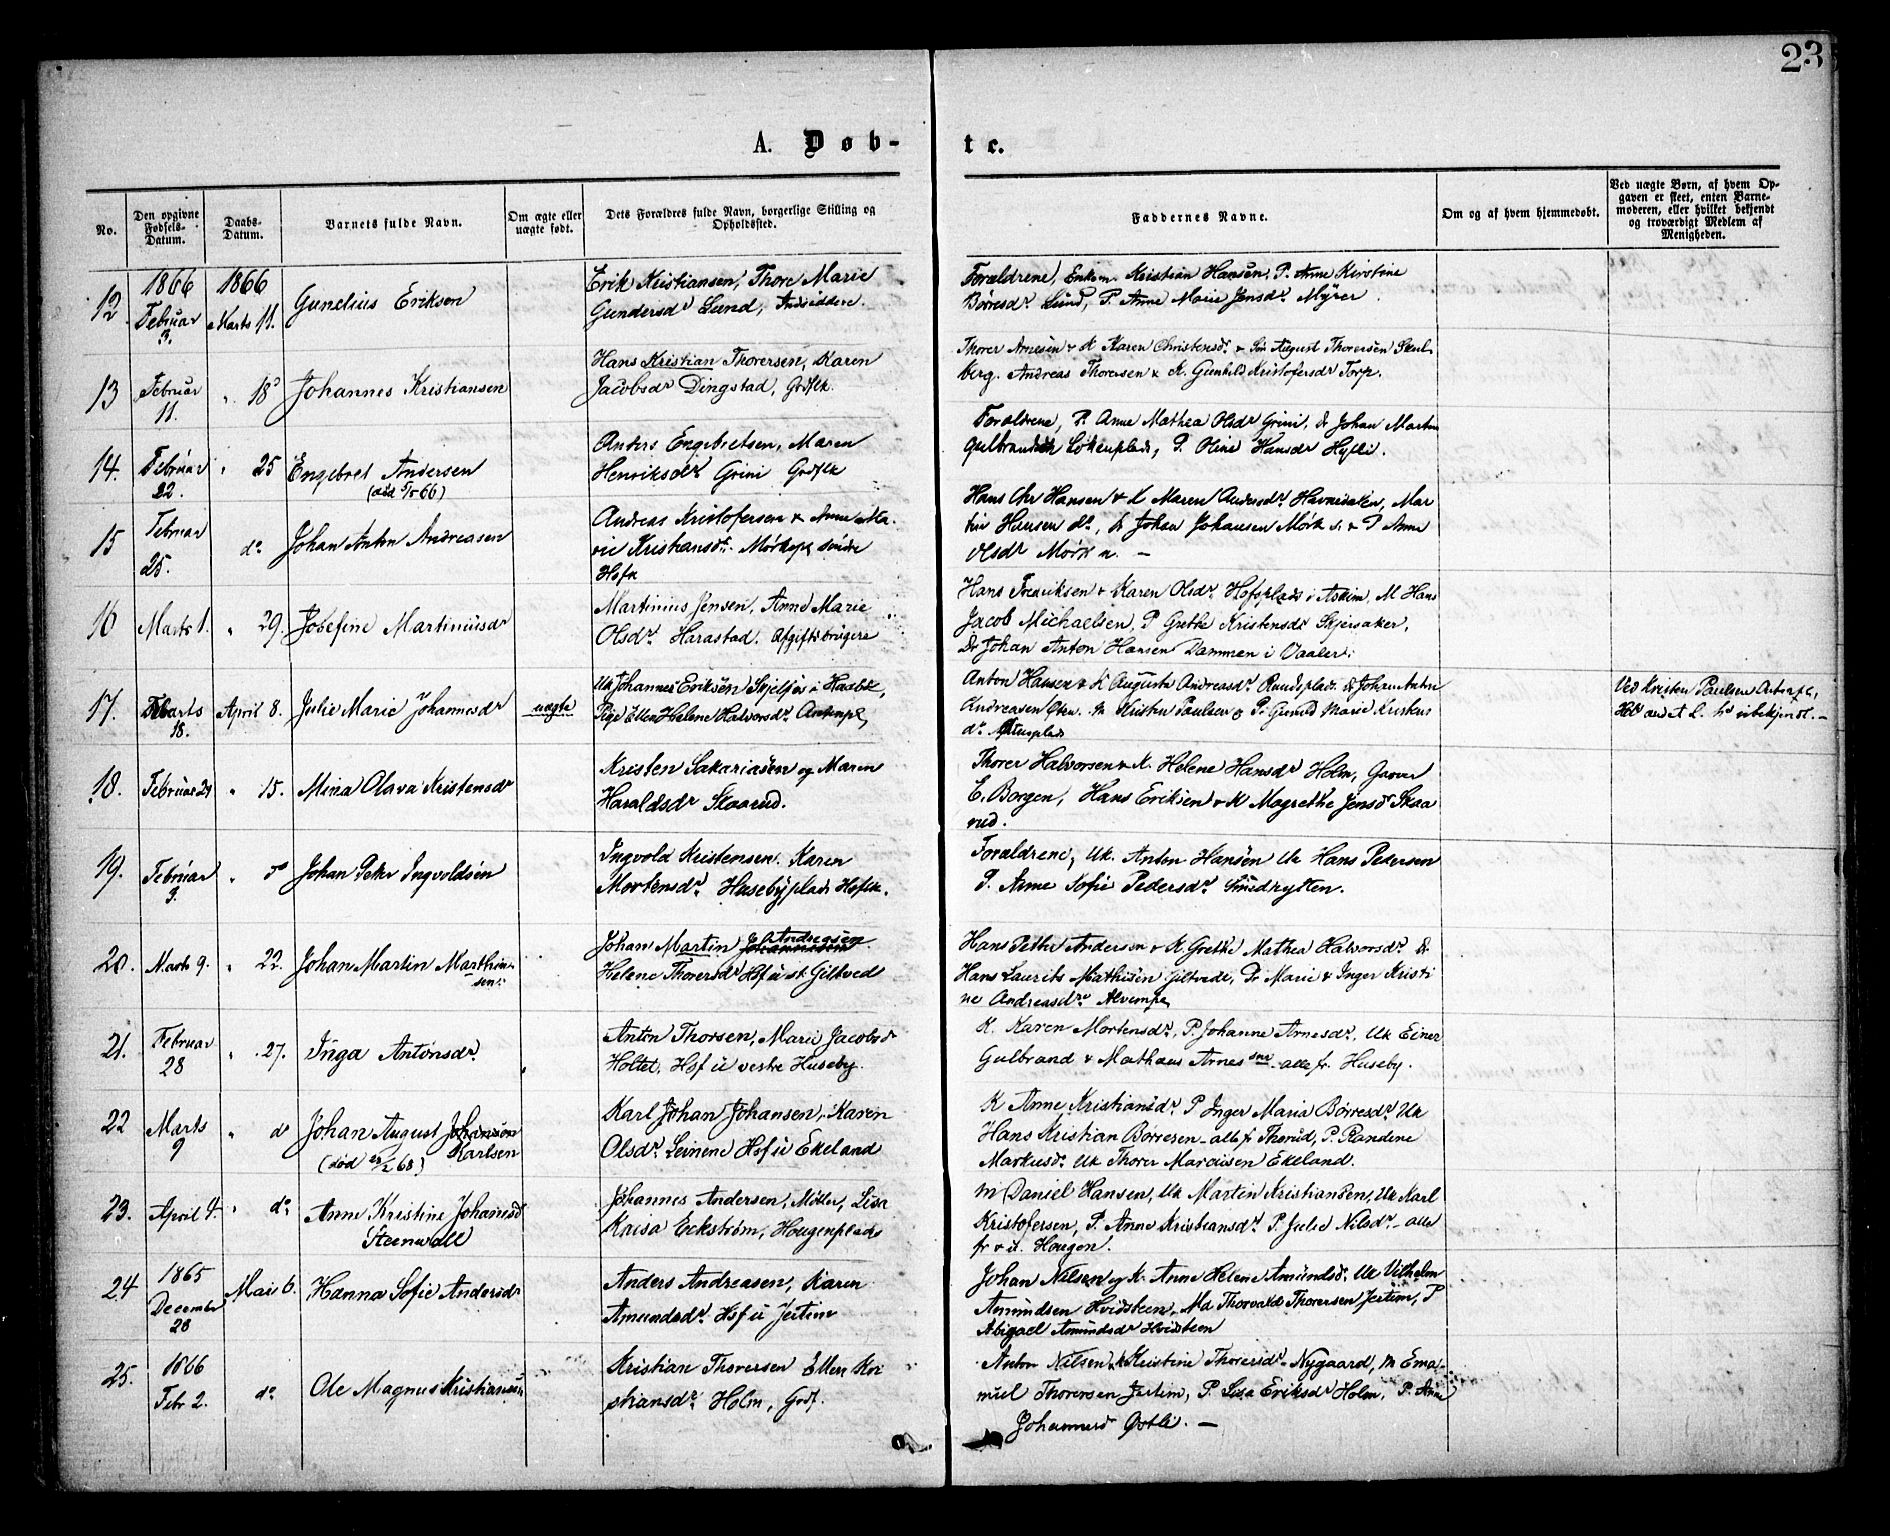 23
A. Døb-
te.
No.
Den opgivne Fødsels-Datum.
Daabs-Datum.
Barnets fulde Navn.
Om ægte eller uægte født.
Dets Forældres fulde Navn, borgerlige Stilling og Opholdssted.
Faddernes Navne.
Om og af hvem hjemmedøbt.
Ved uægte Børn, af hvem Op-
gaven er skeet, enten Barne-
moderen, eller hvilket bekjendt
og troværdigt Medlem af
Menigheden.
12
1866
Februar
3.
1866
Marts 11.
Gunelius Eriksen
Erik Kristiansen, Thore Marie
Gundersdr Lund,
Forældrene, Enkem. Kristian Hansen, P. Anne Kirstine
Børresdr Lund, P. Anne Marie Jensdr Myrer.
13
Februar
11.
" 18
Johannes Kristiansen
Hans Kristian Thorersen, Karen
Jacobsdr Dingstad, Grdflk.
Thorer Arnesen & K Karen Christensdr & Søn August Thorersen Skul-
berg. Andreas Thoresen & K. Gunhild Kristofersdr Torp.
14.
Februar
22.
" 25
Engebret Andersen
(død 5/5 66)
Anders Engebretsen, Maren
Henriksdr Grini Grdflk
Forældrene, P. Anne Mathea Olsdr Grini, Dr Johan Martin
Gulbrandsen Løkenplads, P. Oline Hansdr Hylli.
15
Februar
25.
do
Johan Anton Andreasen
Andreas Kristofersen & Anne Ma-
rie Kristiansdr. Mørkepl søndre
Hsfk
Hans Chr Hansen & K Maren Andersdr, Mar
tin Hansen do, Johan Johansen Mørk s. & P Anne
Olsdr Mørk n. —
16
Marts 1.
" 29.
Josefine Martiniusdr
Martinius Jensen, Anne Marie
Olsdr Harastad. Afgiftsbrugere
Hans Fredriksen & Karen Olsdr Hofsplads i Askim, M Hans
Jacob Michaelsen, P Grethe Kristensdr Skjersaker,
Dr Johan Anton Hansen Dammen i Vaaler.
17.
Marts
18.
April 8.
Julie Marie Johannesdr
uægte
Uk Johannes Eriksen Skjelfos i Haabøl,
Pige Ellen Helene Halvorsdr
Anton Hansen & K Augusta Andreasdr Rundsplads. Dr Johan Anton
Andreasen M Kristen Paulsen & P. Gunild Marie
do
Ved Kristen Paulsen
18.
Februar 21
" 15.
Mina Olava Kristensdr
Kristen Sakariasen og Maren
Haraldsdr Skaarud.
Thorer Halvorsen & K. Helene Hansdr Holm,
E. Borgen, Hans Eriksen & K Magrethe Jensdr Skaa
rud.
19.
Februar
3.
" do
Johan Peter Ingvoldsen
Ingvold Kristensen. Karen
Mortensdr Husebyplads Hsflk.
Forældrene, Uk. Anton Hansen Uk Hans Pedersen
P. Anne Sofie Pedersdr Smedhytten.
20.
Marts 9.
" 22.
Johan Martin Marthin-
sen.
Johan Martin Andreasen
Helene Thorersdr Hsf u st Giltved
Hans Petter Andersen & K Grethe Mathea Halvorsdr Dr
Hans Laurits Mathisen Giltvedt, Pr Marie & Inger Kristi
ne Andreasdre
21.
Februar
28
" 27.
Inga Antonsdr.
Anton Thorsen, Marie Jacobsdr
Holtet. Hsf u vestre Huseby.
K. Karen Mortensdr, P. Johanne Arnesdr, Uk Einer
Gulbrand & Mathæus Arnes sne alle fr. Huseby.
22
Marts
9
" do
Johan August Johansen
Karlsen
(død /2 68)
Karl Johan Johansen, Karen
Olsdr Hsf u Ekeland
K Anne Kristiansdr P Inger Maria Børresdr Uk
Hans Kristian Børresen alle fr Thorud, P. Randine
Markusdr Uk Thorer Mariusen Ekeland.
23.
April 4.
" do
Anne Kristine Johanesdr
Steenwall
Johannes Andersen, Møller, Lisa
Kaisa Eckström, Hougenplads
M Daniel Hansen, Uk Martin Kristiansen, Uk Karl
Kristofersen, P. Anne Kristiansdr P. Julie Nilsdr alle
fr & u. Hougen.
24
1865
December
28
Mai 6.
Hanna Sofie Andersdr
Anders Andreasen, Karen
Amundsdr Hsf u Jertim
Johan Nilsen og K. Anne Helene Amundsdr Uk Vilhelm
Amundsen Hvidsteen, Ma Thorvald Thorersen Jertim, P
Abigael Amundsdr Hvidsteen
25.
1866
Febr 2.
do
Ole Magnus Kristiansen
Kristian Thorersen Ellen Kri
stiansdr Holm, Grdf.
Anton Nilsen & K Kristine Thorersdr Nygaard, M Ema-
nuel Thorersen Jertim, P. Lisa Eriksdr Holm, P. Anne
Johannesd Østli. —